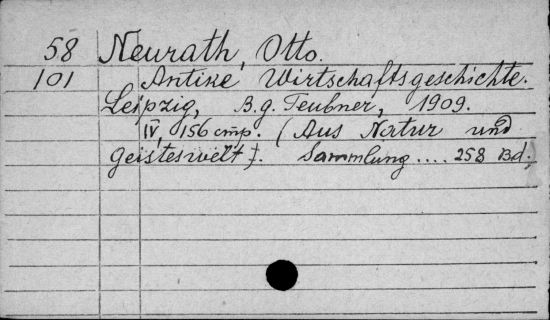 58 Neurath, Otto.
101 Antike Wirtschaftsgeschichte.
Leipzig, B.G. Teubner, 1909.
IV, 156 стр. (Aus Natur und
Geisteswelt). Sammlung .... 258 Bd.)